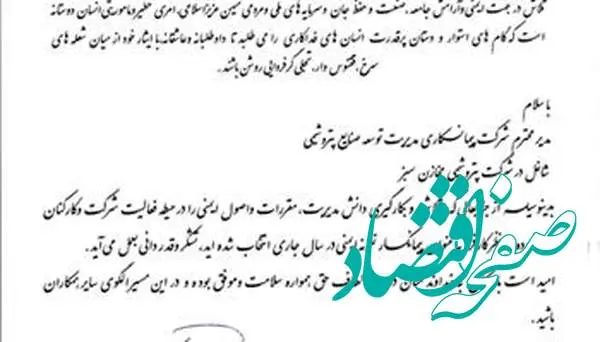 تلاش در جهت ایمنی و آرامش جامعه، صنعت و حفظ جان و سرمایه های ملی و مردمی میهن عزیز اسلامی، امری خطیر و ماموریتی انسان دوستانه
است که گام های استوار و دستان پرقدرت انسان های فداکاری را می طلبد تا داوطلبانه و عاشقانه با ایثار خود از میان شعله های
سرخ، ققنوس وار، تجلی گر فردایی روشن باشند.
با سلام
مدیر محترم شرکت پیمانکاری مدیریت توسعه صنایع پتروشیمی
شاغل در شرکت پتروشیمی مخازن سبز
بدینوسیله از و بکارگیری دانش مدیریت، مقررات و اصول ایمنی را در حیطه فعالیت شرکت و کارکنان
پیمانکار ایمنی در سال جاری انتخاب شده اید، تشکر و قدردانی بعمل می آید.
امید است حق همواره سلامت و موفق بوده و در این مسیر الگوی سایر همکاران
باشید.
صفحه اقتصاد